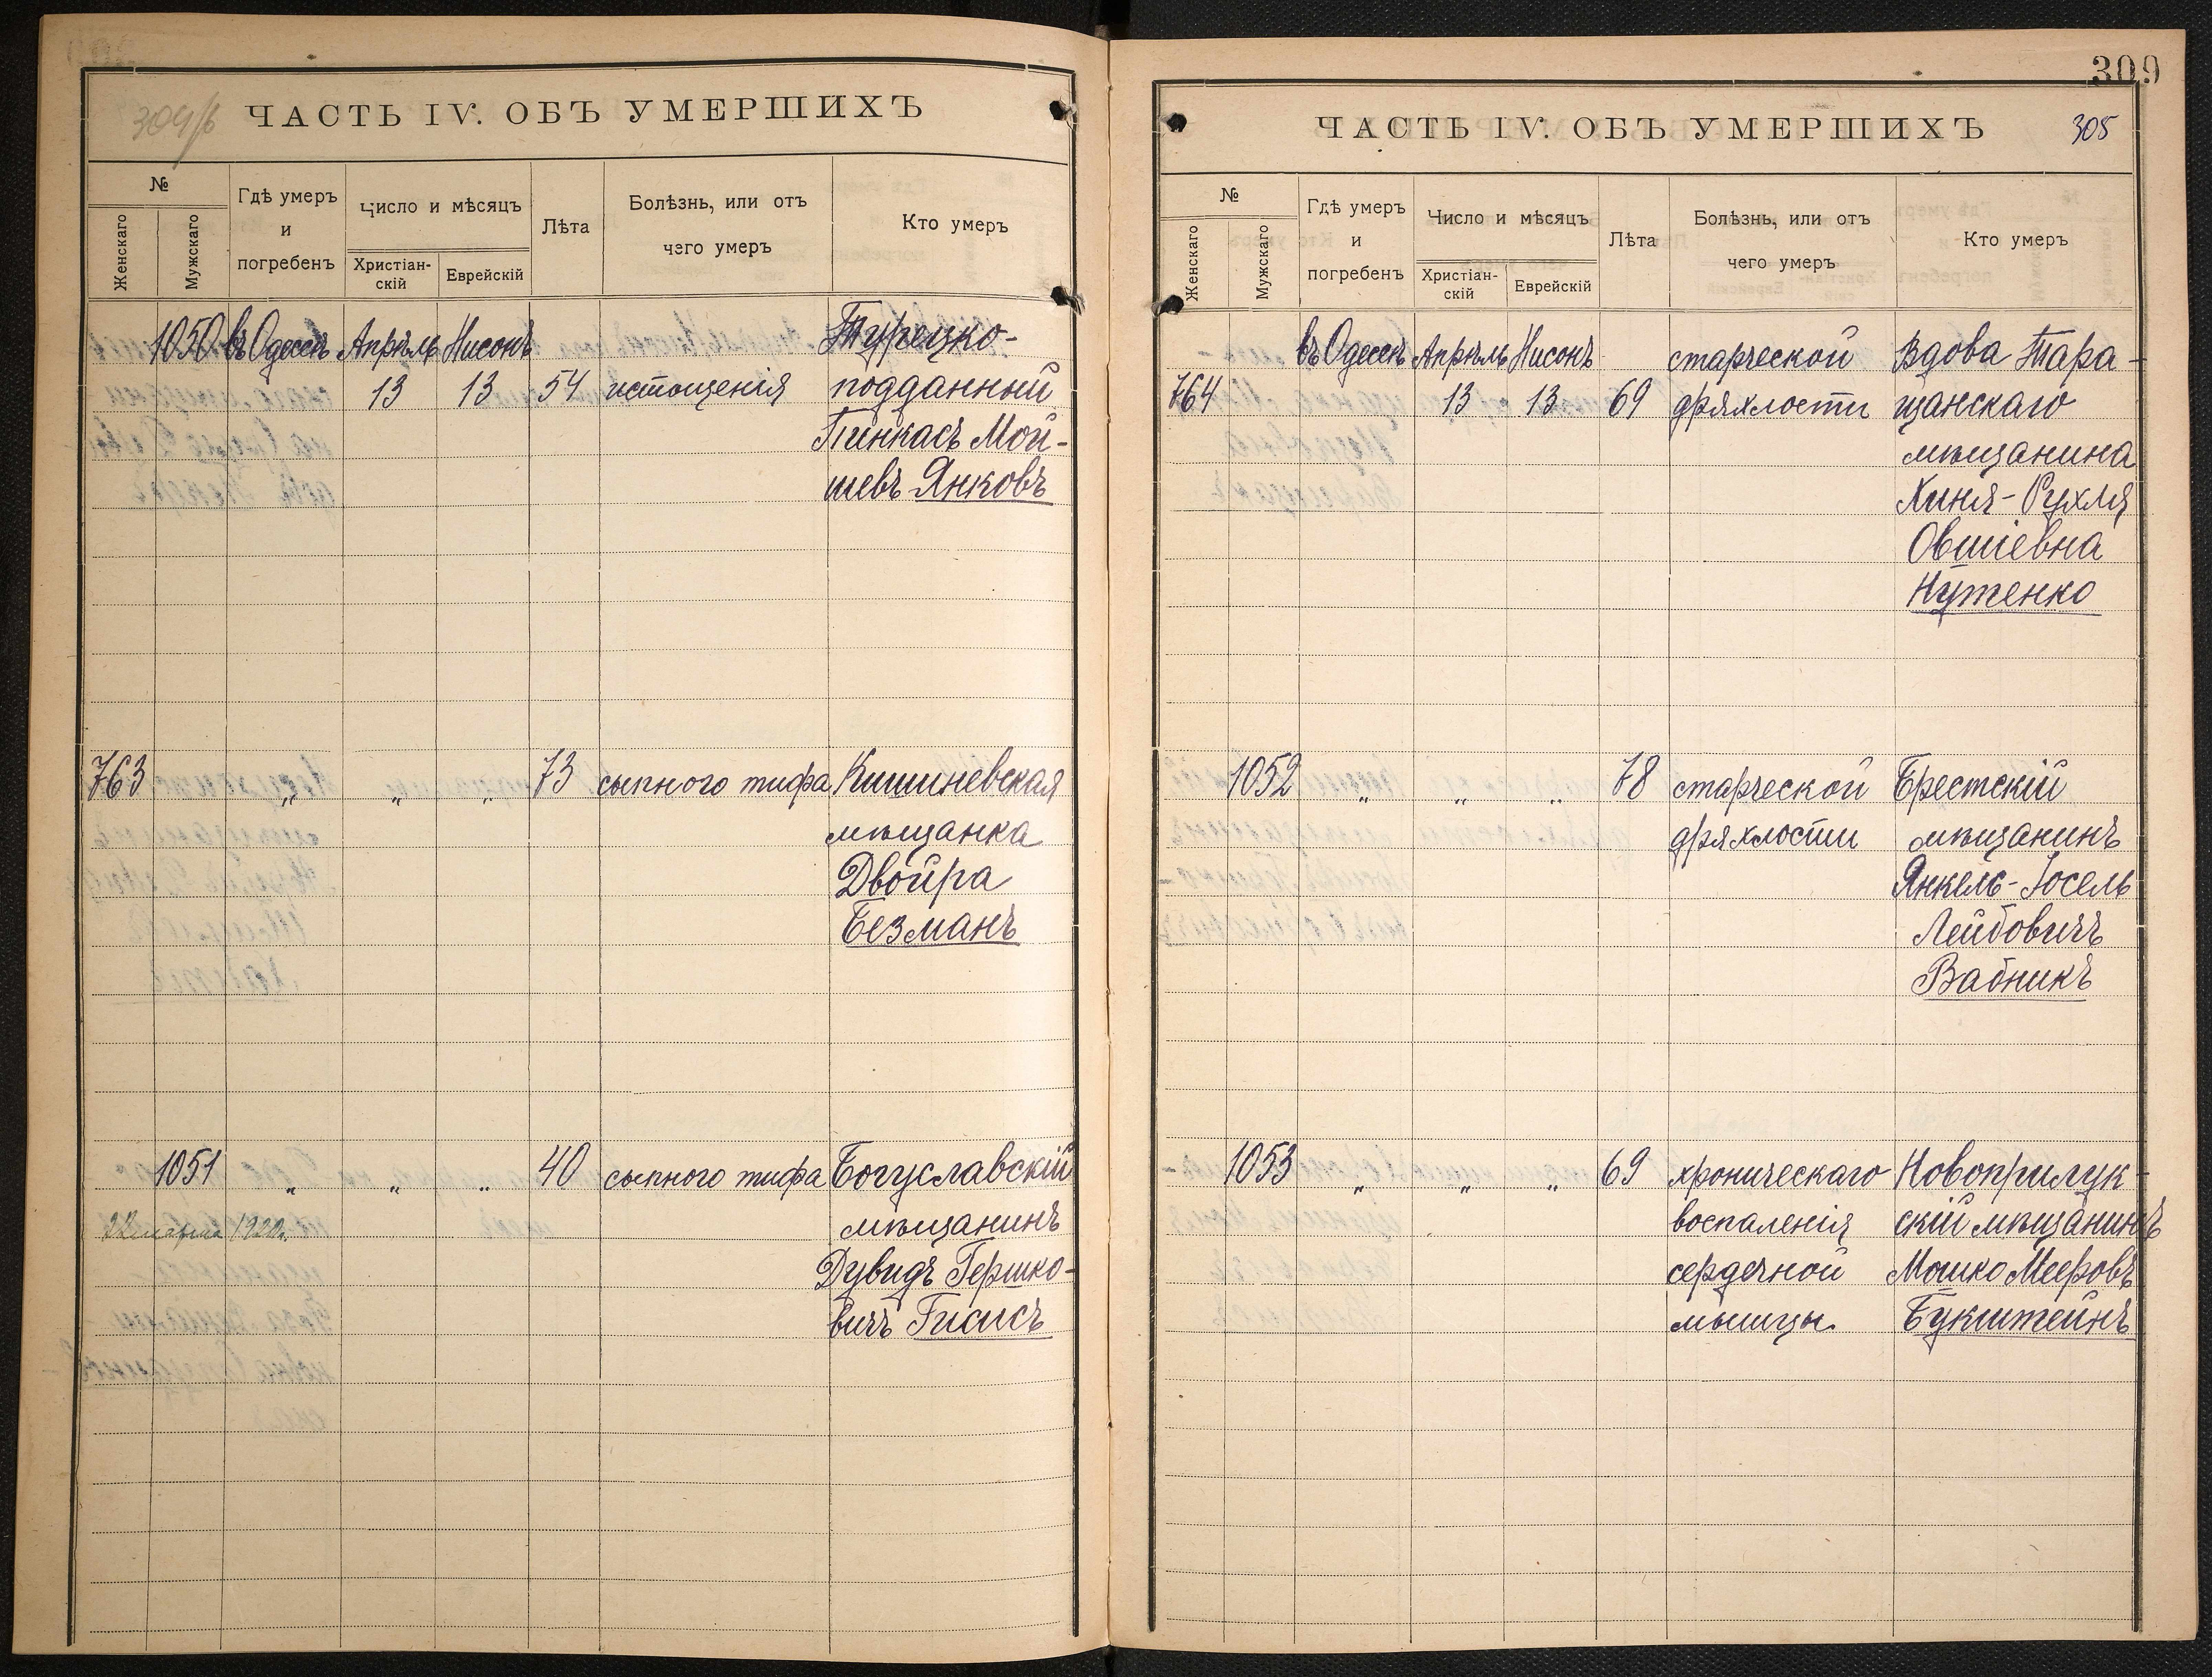 304/б
ЧАСТЬ IV. ОБЪ УМЕРШИХЪ
№
Женскаго
Мужскаго
Гдѣ умеръ
и
погребенъ
Число и мѣсяцъ
Христіан-
скій
Еврейскій
Лѣта
Болѣзнь, или отъ
чего умеръ
Кто умеръ
1050 въ Одессѣ Апрѣль Нисонъ Турецко-
13 13 54 истощенія подданный
Пинкасъ Мой-
шевъ Янковъ
763 „ „ „ 73 сыпного тифа Кишиневская
мѣщанка
Двойра
Безманъ
1051 „ „ „ 40 сыпного тифа Богуславскій
1920г. мѣщанинъ
Дувидъ Гершко-
вичъ Гисисъ
309
ЧАСТЬ IV. ОБЪ УМЕРШИХЪ 305
№
Женскаго
Мужскаго
Гдѣ умеръ
и
погребенъ
Число и мѣсяцъ
Христіан-
скій
Еврейскій
Лѣта
Болѣзнь, или отъ
чего умеръ
Кто умеръ
въ Одессѣ Апрѣль Нисонъ старческой Вдова Тара-
764 13 13 69 дряхлости щанскаго
мѣщанина
Хиня-Рухля
Овшіевна
Нутенко
1052 „ „ „ 78 старческой Брестскій
дряхлости мѣщанинъ
Янкель-Іосель
Лейбовичъ
Вабникъ
1053 „ „ „ 69 хроническаго Новоприлук-
воспаленія скій мѣщанинъ
сердечной Мошко Мееровъ
мышцы Букштейнъ